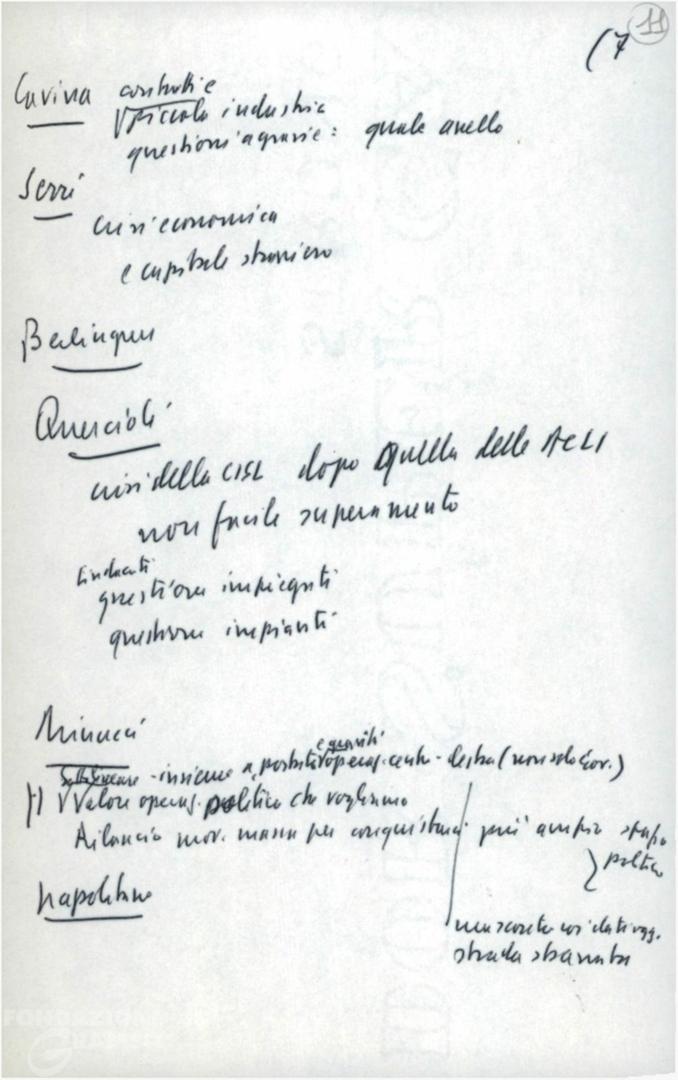 (7 11
Cavina contratti e
piccola industria
questioni agrarie: quale anello
Serri
crisi economica
e capitale straniero
Berlinguer
Quercioli
crisi della CISL dopo quella delle ACLI
non facile superamento
sindacati
questione impiegati
questione impianti
Minucci
e gravità
Sottolineare - insieme a operaz. centro-destra (non solo Gov.)
Valore operaz. politica che vogliamo
Rilancio mov. massa per conquistare più ampio
politico
Napolitano
strada sbarrata
FONDAZIONE
GRAMSCI